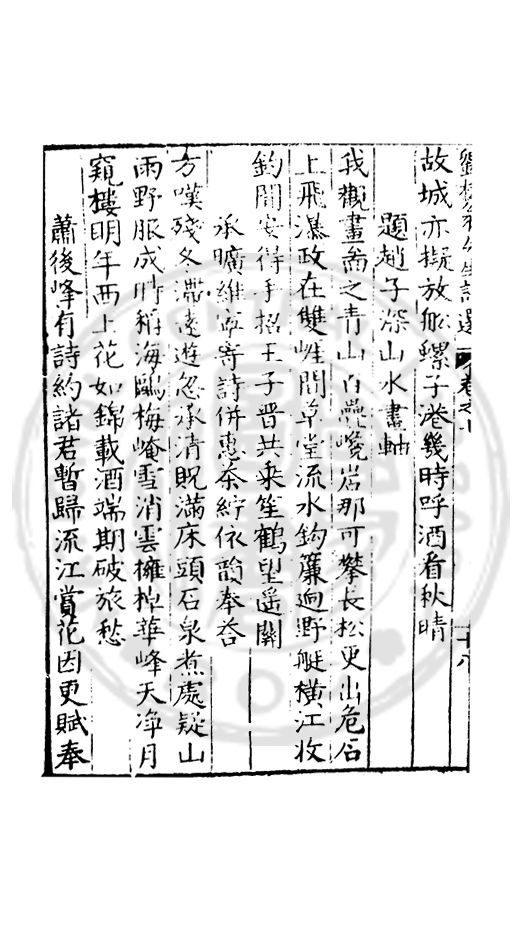 劉槎翁先生詩選 卷之十 十八
故城亦擬放船螺子港幾時呼酒看秋晴
題趙子深山水畫軸
我觀畫翁之青山百疊巉岩那可攀長松更出危石
上飛瀑政在雙崖間草堂流水鈎簾迥野艇橫江收
釣閒安得手招王子晋共乘笙鶴望遥關
承曠維寧寄詩併惠茶紵依韵奉荅
方嘆殘冬滯遠遊忽承清貺滿床頭石泉煮處疑山
雨野服成時稱海鷗梅崦雪消雲擁棹華峰天淨月
窺樓明年西上花如錦載酒端期破旅愁
蕭後峰有詩約諸君暫歸流江賞花因更賦奉